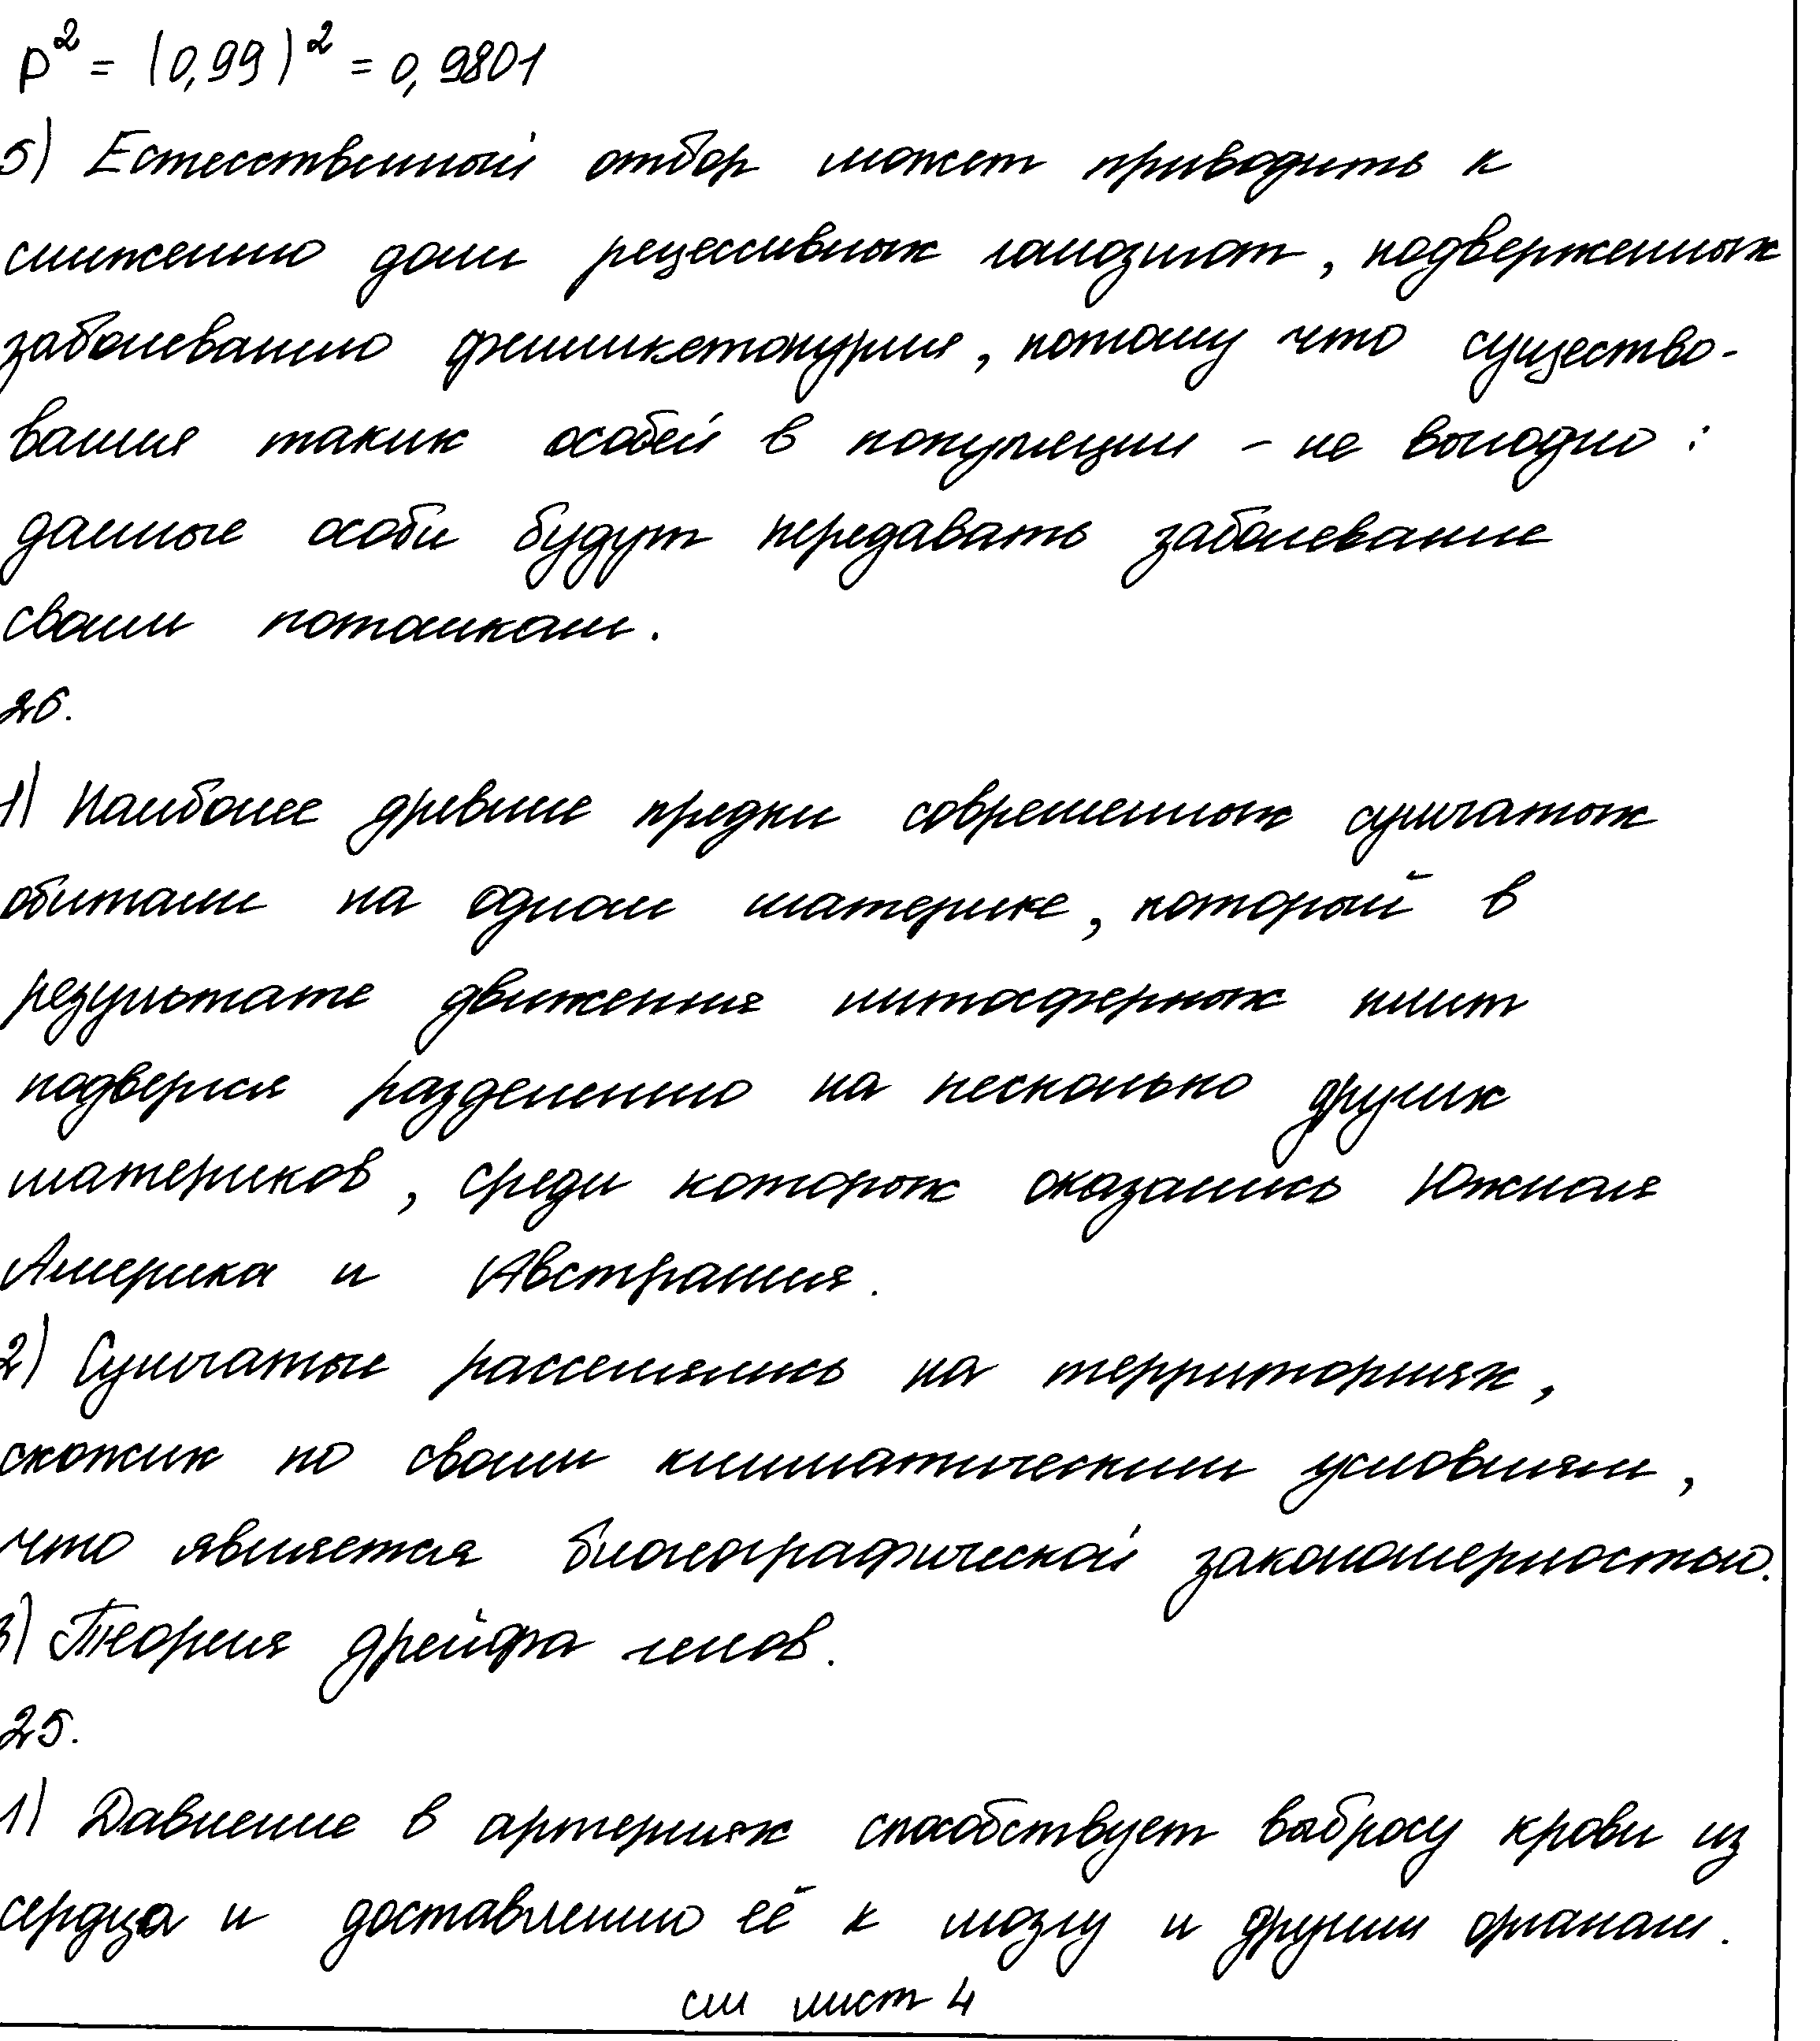 p² = (0,99)² = 0,9801
5) Естесственный отбор может приводить к
снижению доли рецессивных гомозигот, подверженных
заболеванию фенилкетонурия, потому что существо-
вания таких особей в популяции - не выгодно :
данные особи будут передавать заболевание
своим потомкам.
26.
1) Наиболее древние предки современных сумчатых
обитали на одном материке, который в
результате движения литосферных плит
подвергся разделению на несколько других
материков, среди которых оказались Южная
Америка и Австралия.
2) Сумчатые расселялись на территориях,
схожих по своим климатическим условиям,
что является биогеографической закономерностью.
3) Теория дрейфа генов.
25.
1) Давление в артериях способствует выбросу крови из
сердца и доставлению её к мозгу и другим органам.
см лист 4